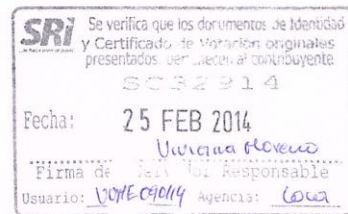 SRi
Se verifica que los documentos de Identidad
y Certificado de Votación originales
presentados, pertenecen al contribuyente
SC32914
Fecha: 25 FEB 2014
Viviana Moreno
Firma de Responsable
Usuario: Agencia: